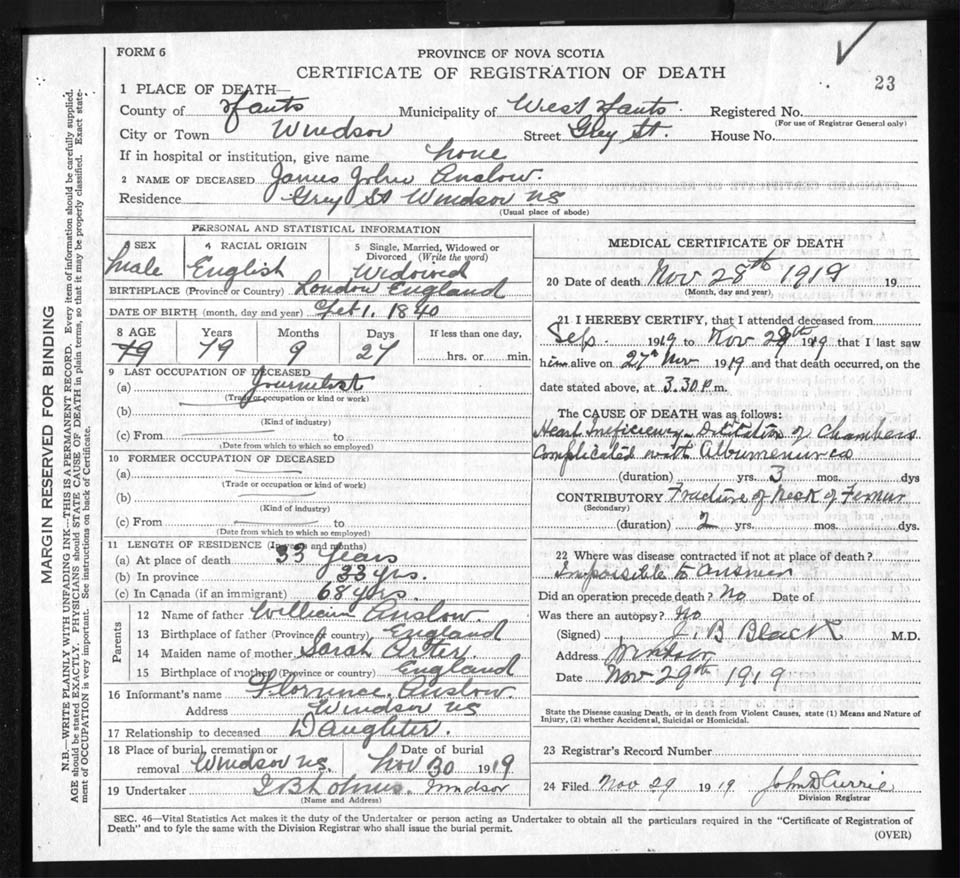 FORM 6
PROVINCE OF NOVA SCOTIA
CERTIFICATE OF REGISTRATION OF DEATH
23
1 PLACE OF DEATH—
County of Hants Municipality of West Hants Registered No.
(For use of Registrar General only)
City or Town Windsor Street Grey St. House No.
If in hospital or institution, give name home
2 NAME OF DECEASED James John Anslow.
Residence Grey St Windsor NS
(Usual place of abode)
PERSONAL AND STATISTICAL INFORMATION
3 SEX 4 RACIAL ORIGIN 5 Single, Married, Widowed or Divorced (Write the word)
Male English Widowed
BIRTHPLACE (Province or Country) London England
DATE OF BIRTH (month, day and year) Feb 1. 1840
8 AGE Years Months Days If less than one day,
79 79 9 27 hrs. or min.
9 LAST OCCUPATION OF DECEASED
(a) Journalist
(Trade or occupation or kind or work)
(b)
(Kind of industry)
(c) From to
(Date from which to which so employed)
10 FORMER OCCUPATION OF DECEASED
(a)
(Trade or occupation or kind of work)
(b)
(Kind of industry)
(c) From to
(Date from which to which so employed)
11 LENGTH OF RESIDENCE (In years and months)
(a) At place of death 33 Years
(b) In province 33 yrs.
(c) In Canada (if an immigrant) 68 yrs.
Parents
12 Name of father William Anslow.
13 Birthplace of father (Province or country) England
14 Maiden name of mother Sarah Arter.
15 Birthplace of mother (Province or country) England
16 Informant's name Florence Anslow.
Address Windsor NS
17 Relationship to deceased Daughter.
18 Place of burial, cremation or removal Windsor NS. Date of burial Nov 30 1919
19 Undertaker Windsor
(Name and Address)
MEDICAL CERTIFICATE OF DEATH
20 Date of death Nov 28th 1919 19
(Month, day and year)
21 I HEREBY CERTIFY, that I attended deceased from
Sep. 1919 to Nov 28th 1919 that I last saw
him alive on 27th Nov 1919 and that death occurred, on the
date stated above, at 3.30 p.m.
The CAUSE OF DEATH was as follows:
Heart Inefficiency. Dilitation of Chambers
Complicated with
(duration) yrs. 3 mos. dys
CONTRIBUTORY Fracture of Neck of Femur
(Secondary)
(duration) 2 yrs. mos. dys.
22 Where was disease contracted if not at place of death?
Impossible to answer
Did an operation precede death? No Date of
Was there an autopsy? No
(Signed) J. B Black M.D.
Address Windsor
Date Nov 29th 1919
State the Disease causing Death, or in death from Violent Causes, state (1) Means and Nature of
Injury, (2) whether Accidental, Suicidal or Homicidal.
23 Registrar's Record Number
24 Filed Nov 29 1919 John D Currie
Division Registrar
SEC. 46—Vital Statistics Act makes it the duty of the Undertaker or person acting as Undertaker to obtain all the particulars required in the "Certificate of Registration of
Death" and to fyle the same with the Division Registrar who shall issue the burial permit.
(OVER)
MARGIN RESERVED FOR BINDING
N.B.—WRITE PLAINLY WITH UNFADING INK—THIS IS A PERMANENT RECORD. Every item of information should be carefully supplied.
AGE should be stated EXACTLY. PHYSICIANS should STATE CAUSE OF DEATH in plain terms, so that it may be properly classified. Exact state-
ment of OCCUPATION is very important. See instructions on back of Certificate.